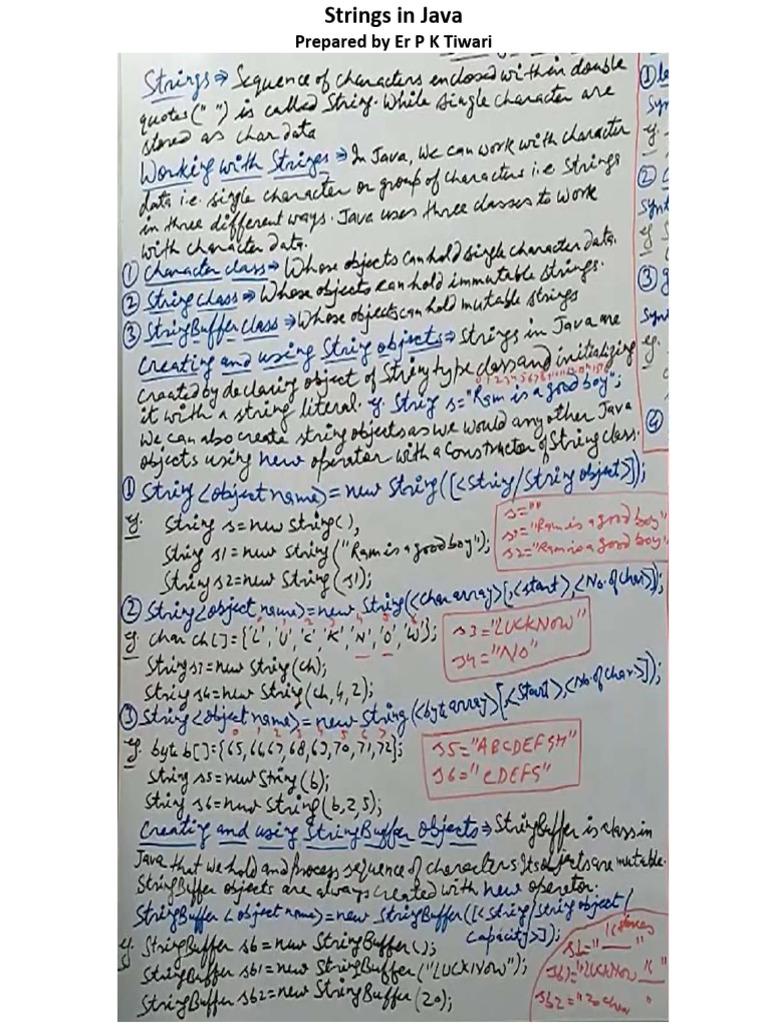 Strings in Java
Prepared by Er P K Tiwari
Strings ⇒ Sequence of characters enclosed within double
quotes(" ") is called String. While single character are
stored as char data
Working with Strings ⇒ In Java, We can work with character
data i.e. single character or group of characters i.e Strings
in three different ways. Java uses three classes to work
with character data.
① Character class ⇒ Whose objects can hold single character data.
② String class ⇒ Whose objects can hold immutable strings.
③ StringBuffer class ⇒ Whose objects can hold mutable strings
Creating and using String objects ⇒ Strings in Java are
created by declaring object of String type class and initializing
it with a string literal. eg. String s="Ram is a good boy";
We can also create string objects as we would any other Java
objects using new operator with a constructor of String class.
① String <object name> = new String([<String/String object>]);
eg. String s=new String();
String s1=new String("Ram is a good boy");
String s2=new String(s1);
s=""
s1="Ram is a good boy"
s2="Ram is a good boy"
② String <object name> = new String(<char array>[,<start>,<No. of char>]);
0 1 2 3 4 5 6
eg. char ch[]={'L','U','C','K','N','O','W'};
String s3=new String(ch);
String s4=new String(ch,4,2);
s3="LUCKNOW"
s4="NO"
③ String <object name> = new String(<byte array>[,<start>,<No. of char>]);
0 1 2 3 4 5 6 7
eg. byte b[]={65,66,67,68,69,70,71,72};
String s5=new String(b);
String s6=new String(b,2,5);
s5="ABCDEFGH"
s6="CDEFG"
Creating and using StringBuffer Objects ⇒ StringBuffer is class in
Java that we hold and process sequence of characters. Its objects are mutable.
StringBuffer objects are always created with new operator.
StringBuffer <object name> = new StringBuffer([<String/String object/
capacity>]);
eg. StringBuffer sb=new StringBuffer();
StringBuffer sb1=new StringBuffer("LUCKNOW");
StringBuffer sb2=new StringBuffer(20);
sb="
sb1="LUCKNOW
sb2="20 char "
①
Syn
②
Synt
③
Synt
④